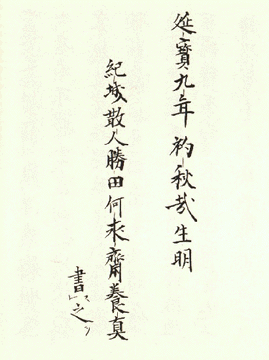 延寶九年初秋哉生明
紀城散人勝田何求齋養真
書之